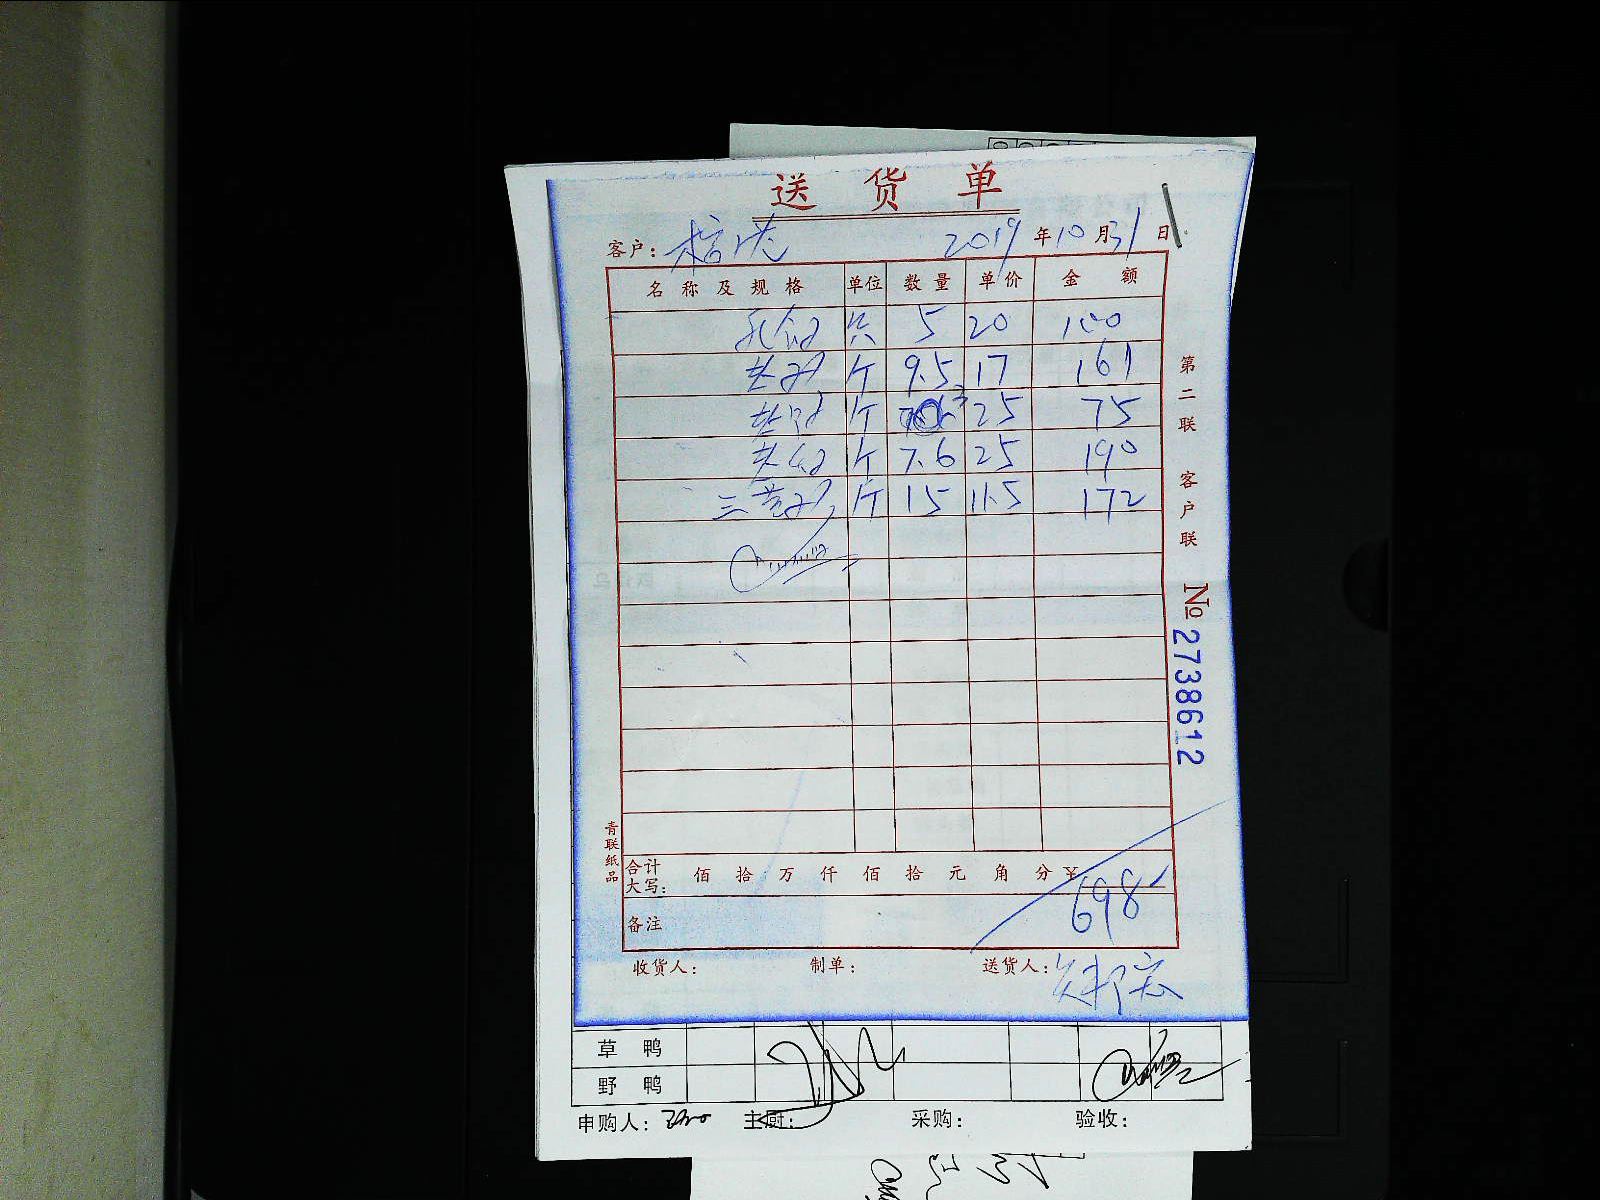 送货单
客户： 2019年10月31日
名称及规格 单位 数量 单价 金额
乳鸽 只 5 20 100
老鸡 斤 9.5 17 161
斤 3 25 75
斤 7.6 25 190
三黄鸡 斤 15 11.5 172
合计大写： 佰 拾 万 仟 佰 拾 元 角 分 ¥ 698
备注
收货人： 制单： 送货人：
第二联 客户联
No 2738612
青联纸品
草鸭
野鸭
申购人： 主厨： 采购： 验收：